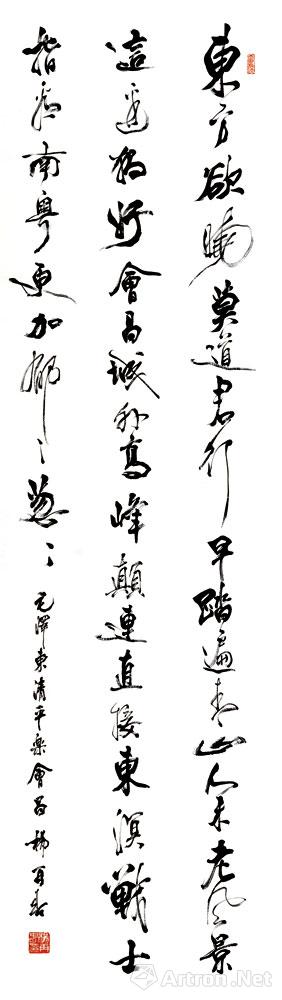 東方欲曉莫道君行早踏遍青山人未老風景
這邊獨好會昌城外高峰顛連直接東溟戰士
指看南粤更加郁〻葱〻
毛澤東清平樂會昌 楊再春
Artron.Net